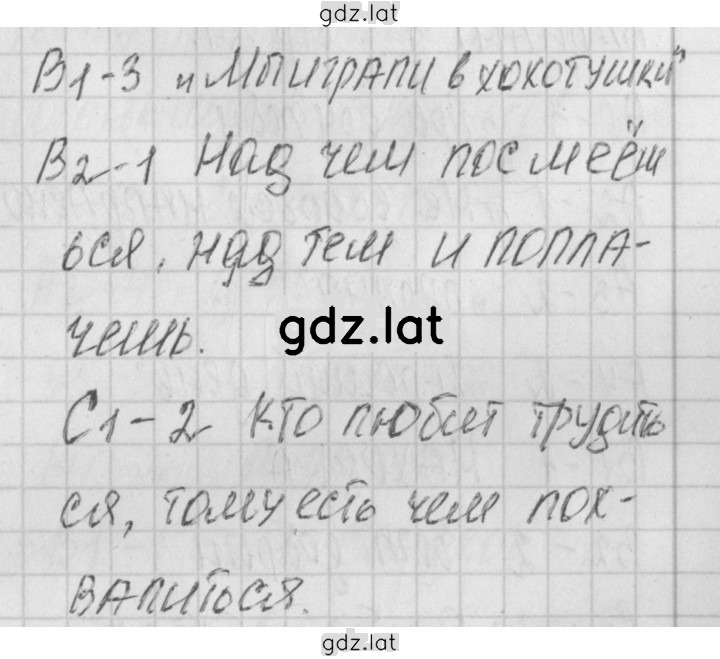 gdz.lat
В1-3 „Мы играли в хохотушки"
В2-1 Над чем посмеёш
ься, над тем и попла-
чешь.
gdz.lat
С1-2 Кто любит трудить
ся, тому есть чем пох-
валиться.
gdz.lat